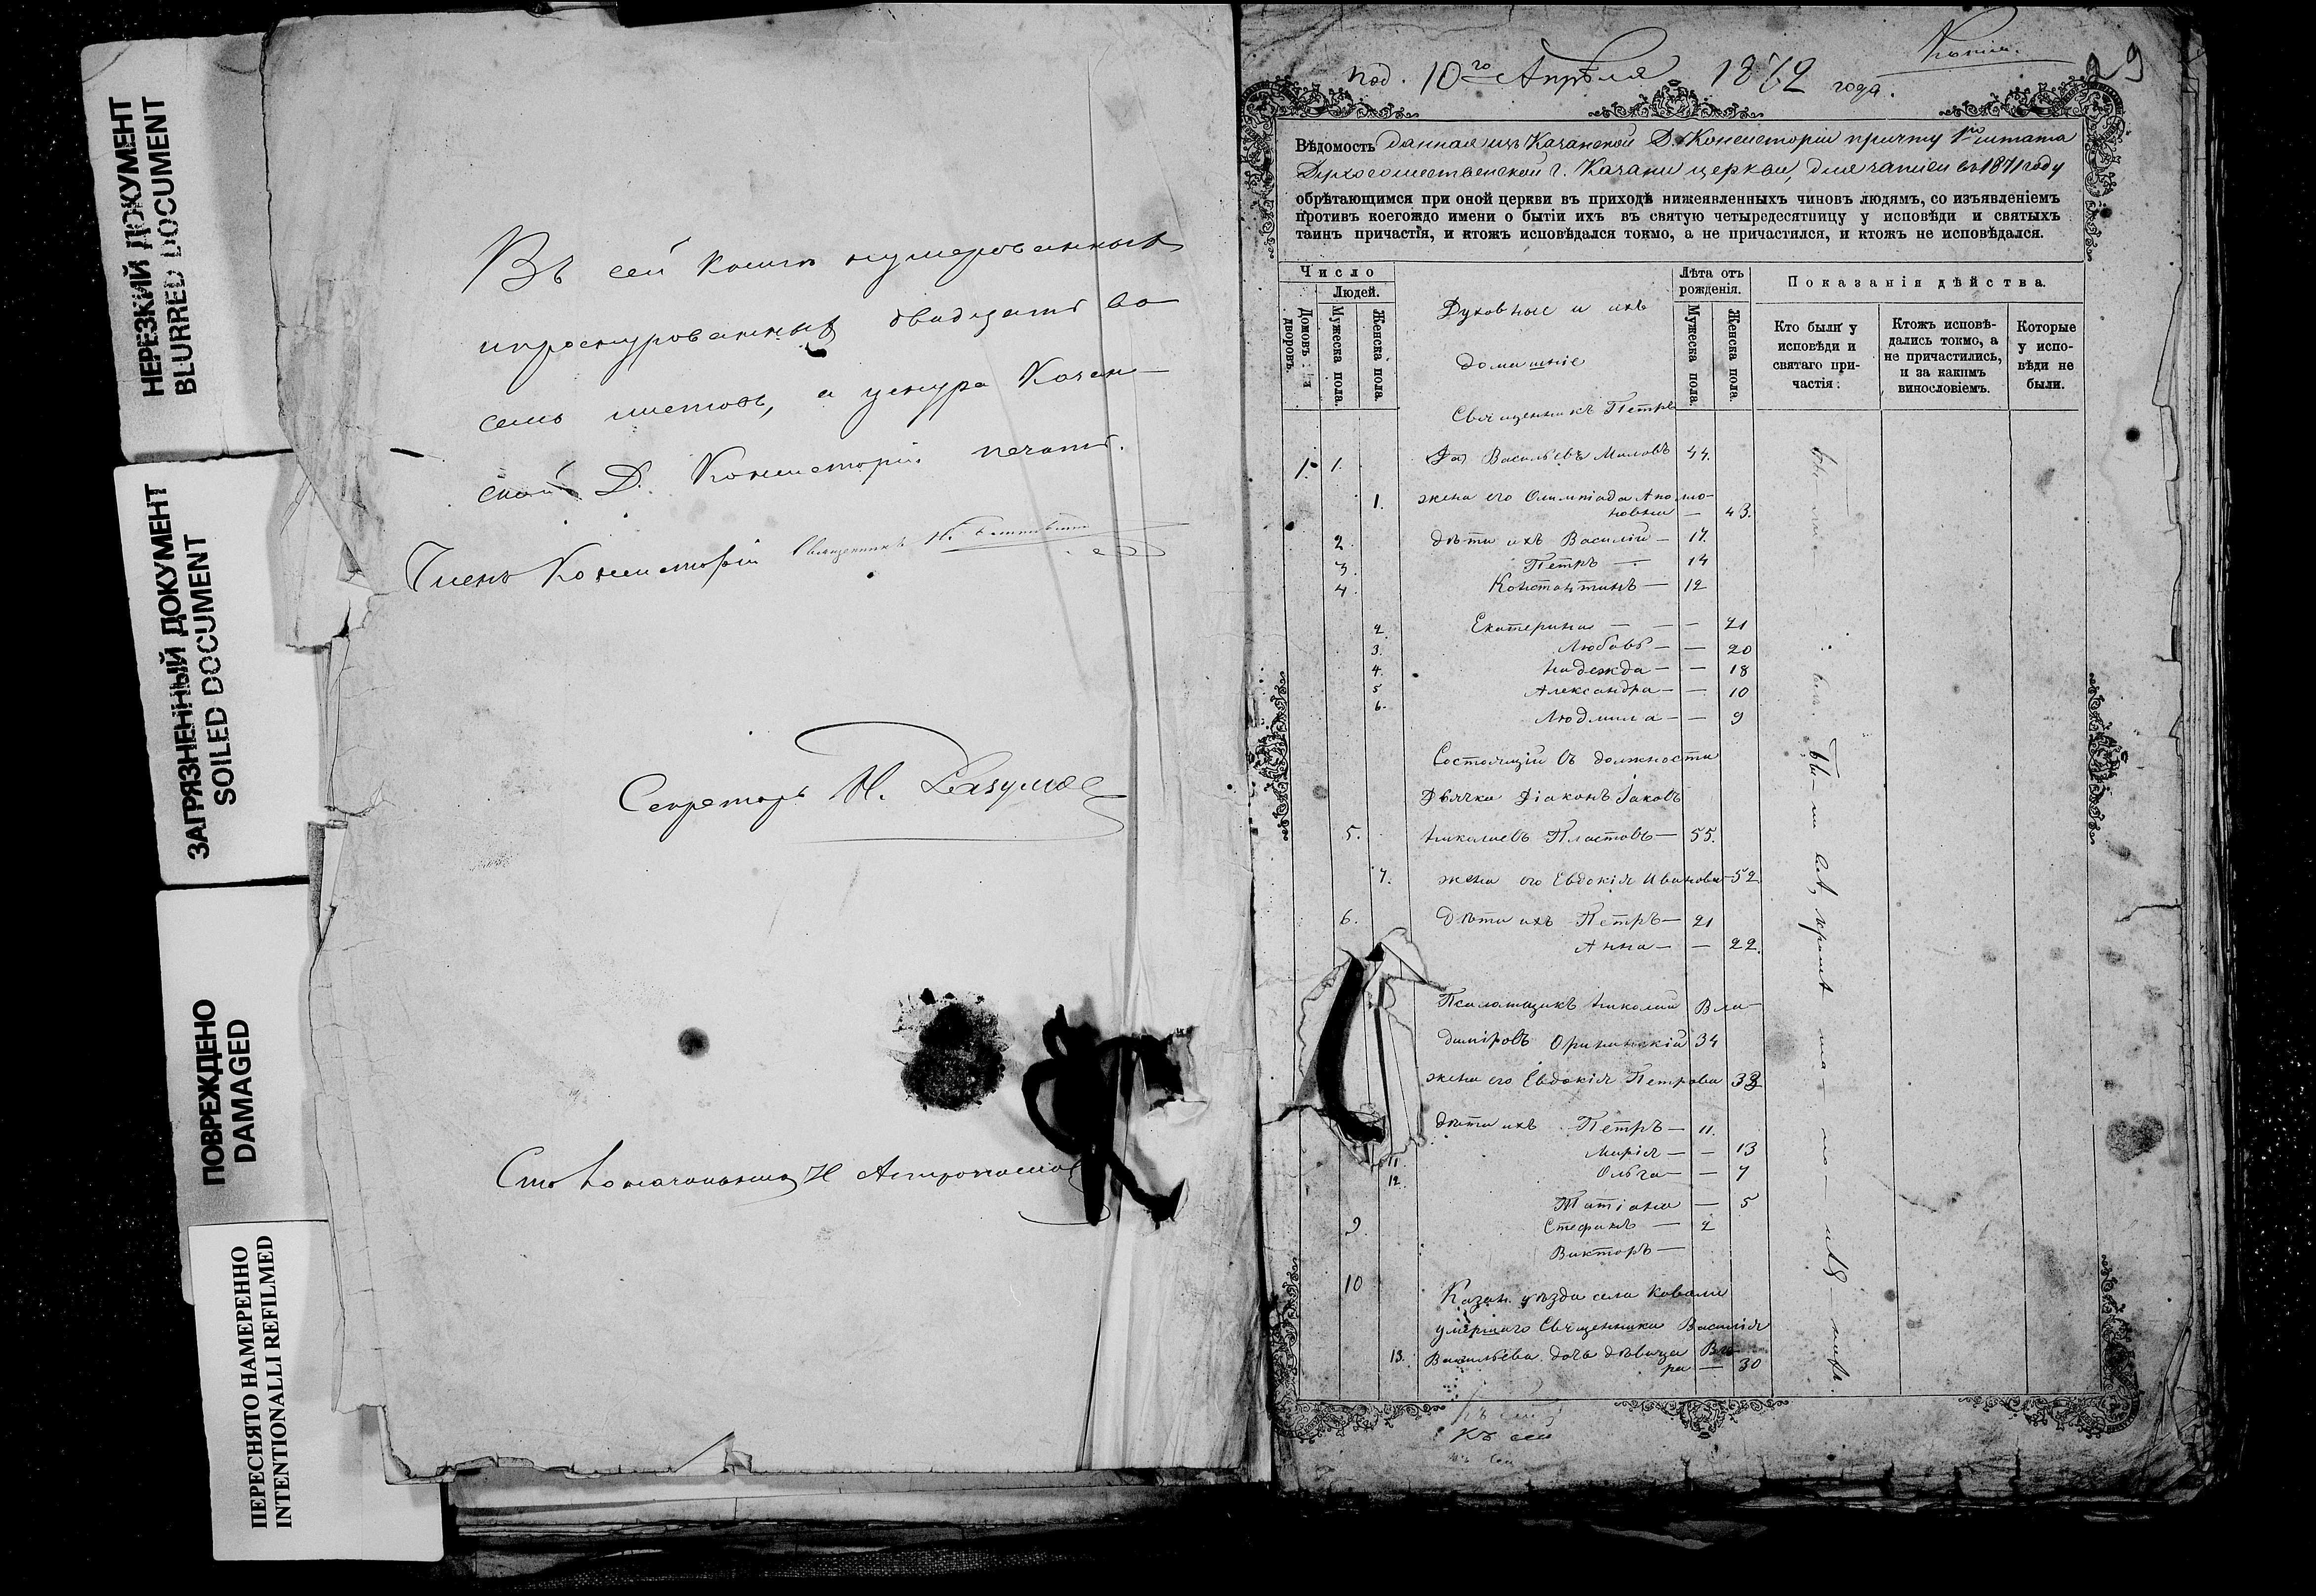 НЕРЕЗКИЙ ДОКУМЕНТ
BLURRED DOCUMENT
ЗАГРЯЗНЕННЫЙ ДОКУМЕНТ
SOILED DOCUMENT
ПОВРЕЖДЕНО
DAMAGED
ПЕРЕСНЯТО НАМЕРЕННО
INTENTIONALLI REFILMED
Въ сей книгѣ нумерованныхъ
и прошнурованныхъ двадцать во-
семь листовъ, а у шнура Казан-
ской Д. Консисторіи печать.
Членъ Консисторіи Священникъ
Секретарь Н. Разумов
Столоначальникъ Н
Копія.
под. 10го Апрѣля 1872 года.
29
Вѣдомость данная изъ Казанской Д. Консисторіи причту 1го штата
Духосошественской г. Казани церкви, для записи въ 1871 году
обрѣтающимся при оной церкви въ приходѣ нижеявленныхъ чиновъ людямъ, со изъявленіемъ
противъ коегождо имени о бытіи ихъ въ святую четыредесятницу у исповѣди и святыхъ
таинъ причастія, и ктожъ исповѣдался токмо, а не причастился, и ктожъ не исповѣдался.
Число
Людей.
Домовъ и дворовъ.
Мужеска пола.
Женска пола.
Духовные и ихъ
домашніе
Лѣта отъ рожденія.
Мужеска пола.
Женска пола.
Показанія дѣйства.
Кто были у исповѣди и святаго причастія.
Ктожъ исповѣ-
дались токмо, а
не причастились,
и за какимъ
винословіемъ.
Которые
у испо-
вѣди не
были.
Священникъ Петръ
1. 1. Васильевъ Миловъ 44.
1. жена его Олимпіада Аполло-
новна — 43.
2. дѣти ихъ Василій — 17.
3. Петръ — 14
4. Константинъ — 12
2. Екатерина — — — 21
3. Любовь — — 20
4. Надежда — — 18
5 Александра — — 10
6. Людмила — — 9
Состоящій въ должности
Дьячка Діаконъ Іаковъ
5. Николаевъ Пластовъ — 55.
7. жена его Евдокія Иванова — 52
6. Дѣти ихъ Петръ — 21
Анна — — 22.
Псаломщикъ Николай Вла-
диміровъ 34
жена его Евдокія Петрова 33
дѣти ихъ Петръ — 11.
11. Марія — — 13
12. Ольга — — 7
Татіана — 5
9. Стефанъ — 2
Викторъ —
10
Казан. уѣзда села Ковали
умершаго Священника Василія
13. Васильева дочь дѣвица Вѣ-
ра — 30